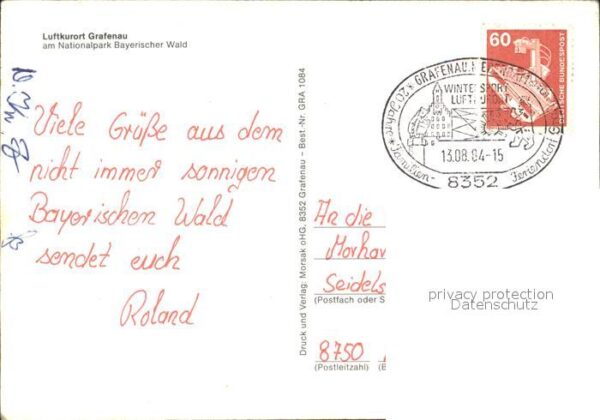 Luftkurort Grafenau
am Nationalpark Bayerischer Wald
Viele Grüße aus dem
nicht immer sonnigen
Bayerischen Wald
sendet euch
Roland
Druck und Verlag: Morsak oHG, 8352 Grafenau – Best.-Nr. GRA 1084
60
DEUTSCHE BUNDESPOST
GRAFENAU
WINTERSPORT
LUFTKURORT
13.08.84-15
Familien-
Feriendorf
8352
An die
Morhav
Seidels
(Postfach oder S
8750
(Postleitzahl) (B
privacy protection
Datenschutz